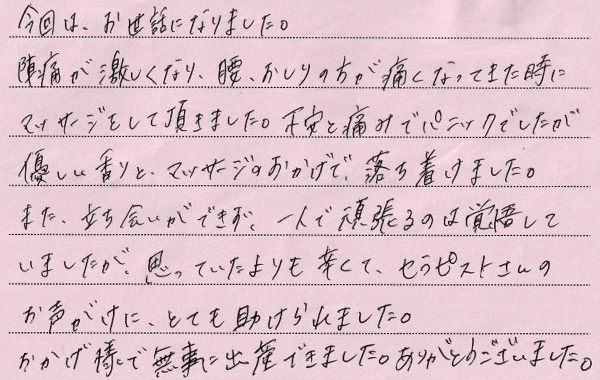 今回は、お世話になりました。
陣痛が激しくなり、腰、おしりの方が痛くなってきた時に
マッサージをして頂きました。不安と痛みでパニックでしたが
優しい香りと、マッサージのおかげで、落ち着けました。
また、立ち会いができず、一人で頑張るのは覚悟して
いましたが、思っていたよりも辛くて、セラピストさんの
お声がけに、とても助けられました。
おかげ様で無事に出産できました。ありがとうございました。